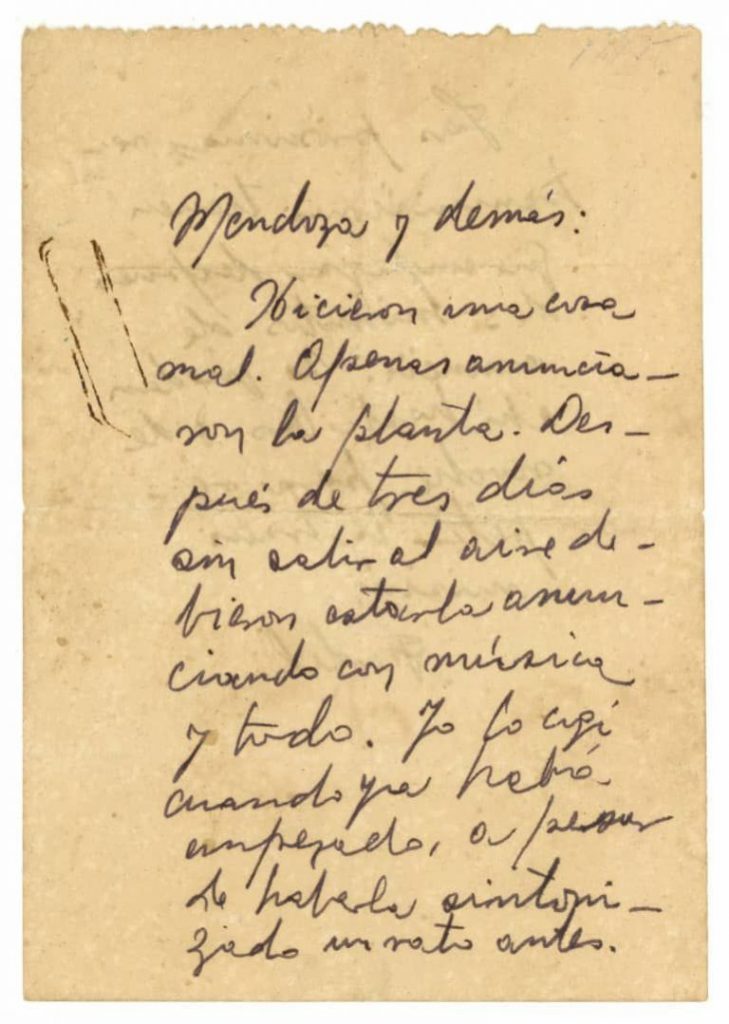 Mendoza y demás:
Hicieron una cosa
mal. Apenas anuncia-
ron la planta. Des-
pués de tres días
sin salir al aire de-
bieron estarla anun-
ciando con música
y todo. Yo la cogí
cuando ya había
empezado, a pesar
de haberla sintoni-
zado un rato antes.